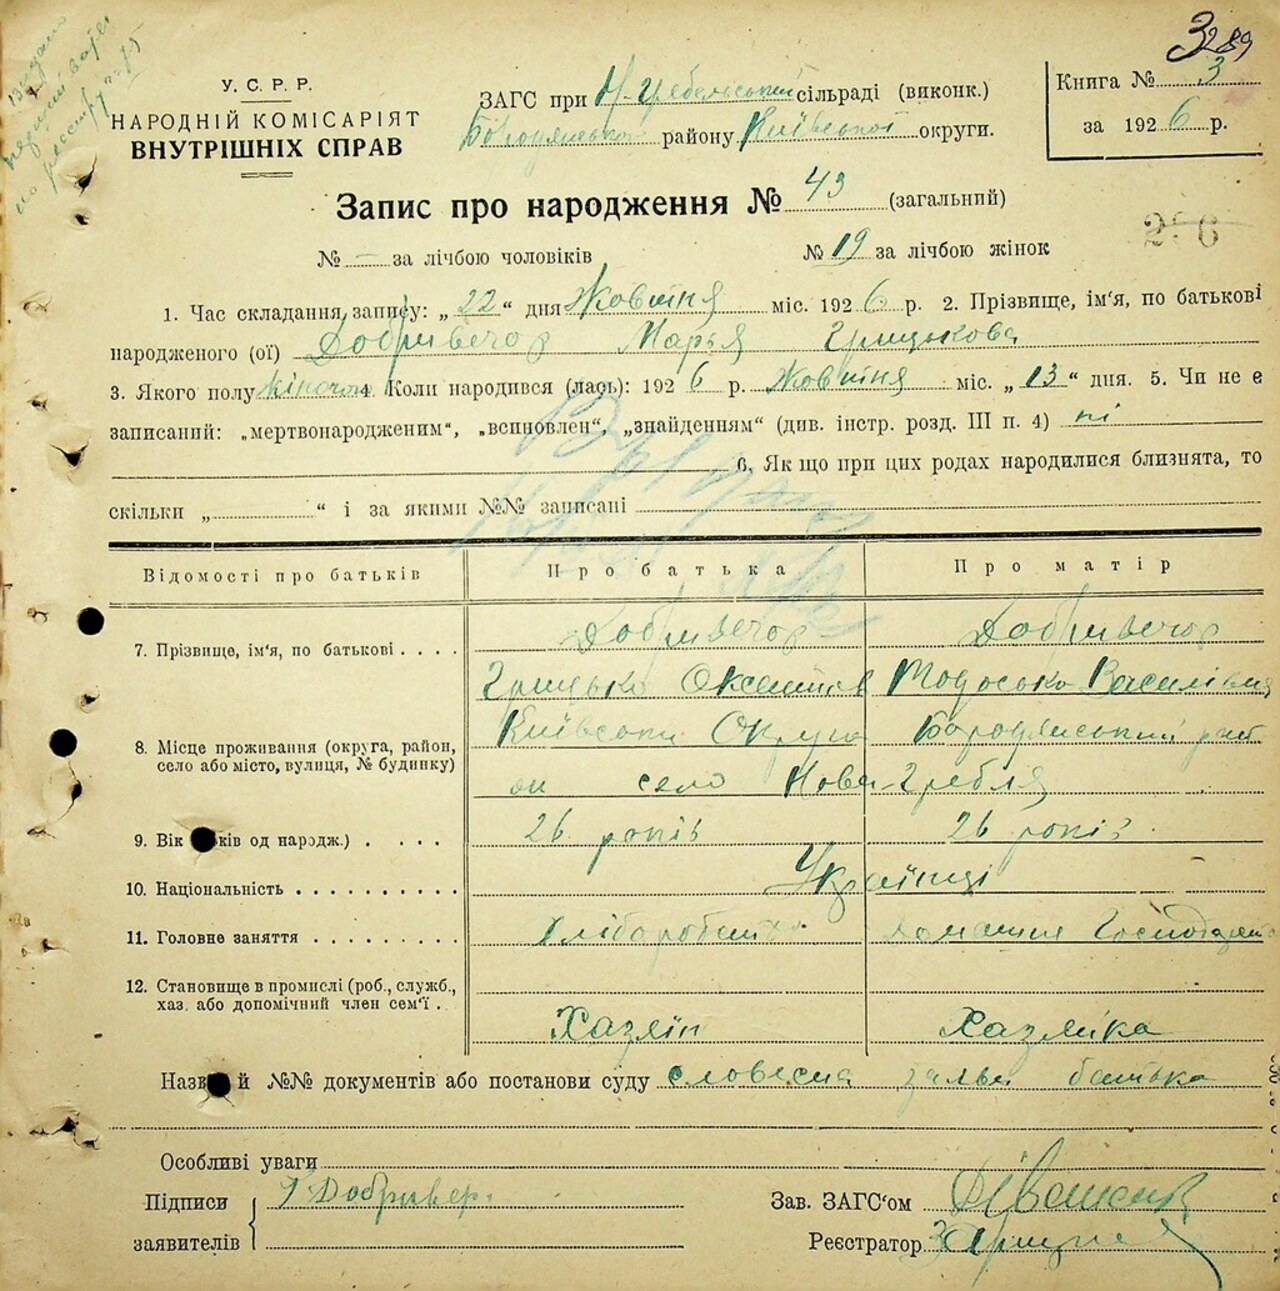 3289
У. С. Р. Р.
НАРОДНІЙ КОМІСАРІЯТ
ВНУТРІШНІХ СПРАВ
ЗАГС при Н-Гребельський сільраді (виконк.)
Бородянського району Київської округи.
Книга № 3
за 1926 р.
Запис про народження № 43 (загальний)
№ — за лічбою чоловіків № 19 за лічбою жінок
226
1. Час складання запису: „ 22 “ дня Жовтня міс. 1926 р. 2. Прізвище, ім'я, по батькові
народженого (ої) Добривечор Марья Грицькова
3. Якого полу жіночого 4. Коли народився (лась): 1926 р. Жовтня міс. „ 13 “ дня. 5. Чи не є
записаний: „мертвонародженим“, „вспновлен“, „знайденням“ (див. інстр. розд. III п. 4) ні
6. Як що при цих родах народилися близнята, то
скільки „ “ і за якими №№ записані
Відомості про батьків Про батька Про матір
7. Прізвище, ім'я, по батькові . . . . Добривечор Добривечор
Грицько Оксентіев Тодоська Василівна
8. Місце проживання (округа, район, Київськи Округа Бородянський рай
село або місто, вулиця, № будинку) он село Нова-Гребля
9. Вік ків од народж.) . . . . 26 років 26 років
10. Національність . . . . . . . . . . Українці
11. Головне заняття . . . . . . . . . Хліборобство домашня Господарство
12. Становище в промислі (роб., служб.,
хаз. або допомічний член сем'ї . Хазяїн Хазяйка
Назв й №№ документів або постанови суду словесна заява батька
Особливі уваги
Підписи Г Добривер.
заявителів
Зав. ЗАГС'ом
Реєстратор